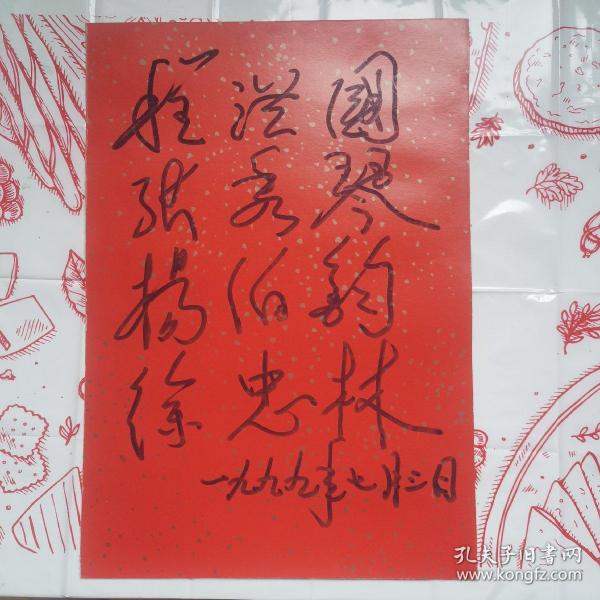 程洪國
张秀琴
杨伯鈞
徐忠林
一九九九年七月三日
孔夫子旧书网
www.kongfz.com